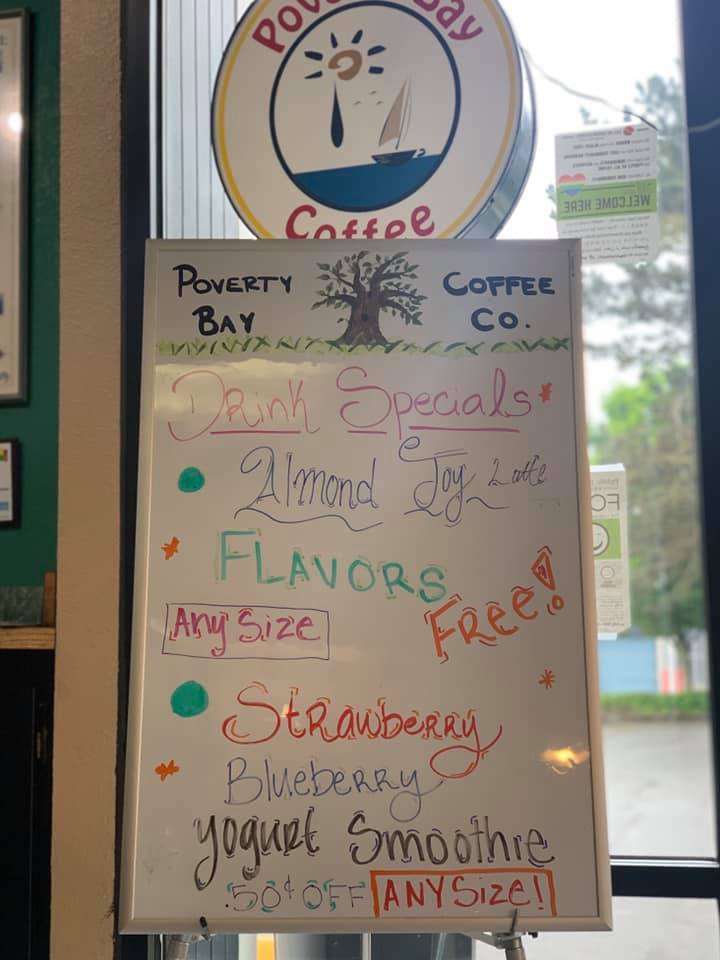 Poverty Bay
Coffee
WELCOME HERE
POVERTY BAY COFFEE CO.
Drink Specials
Almond Joy Latte
FLAVORS
FREE!
Any Size
Strawberry
Blueberry
yogurt Smoothie
.50¢ OFF ANY Size!